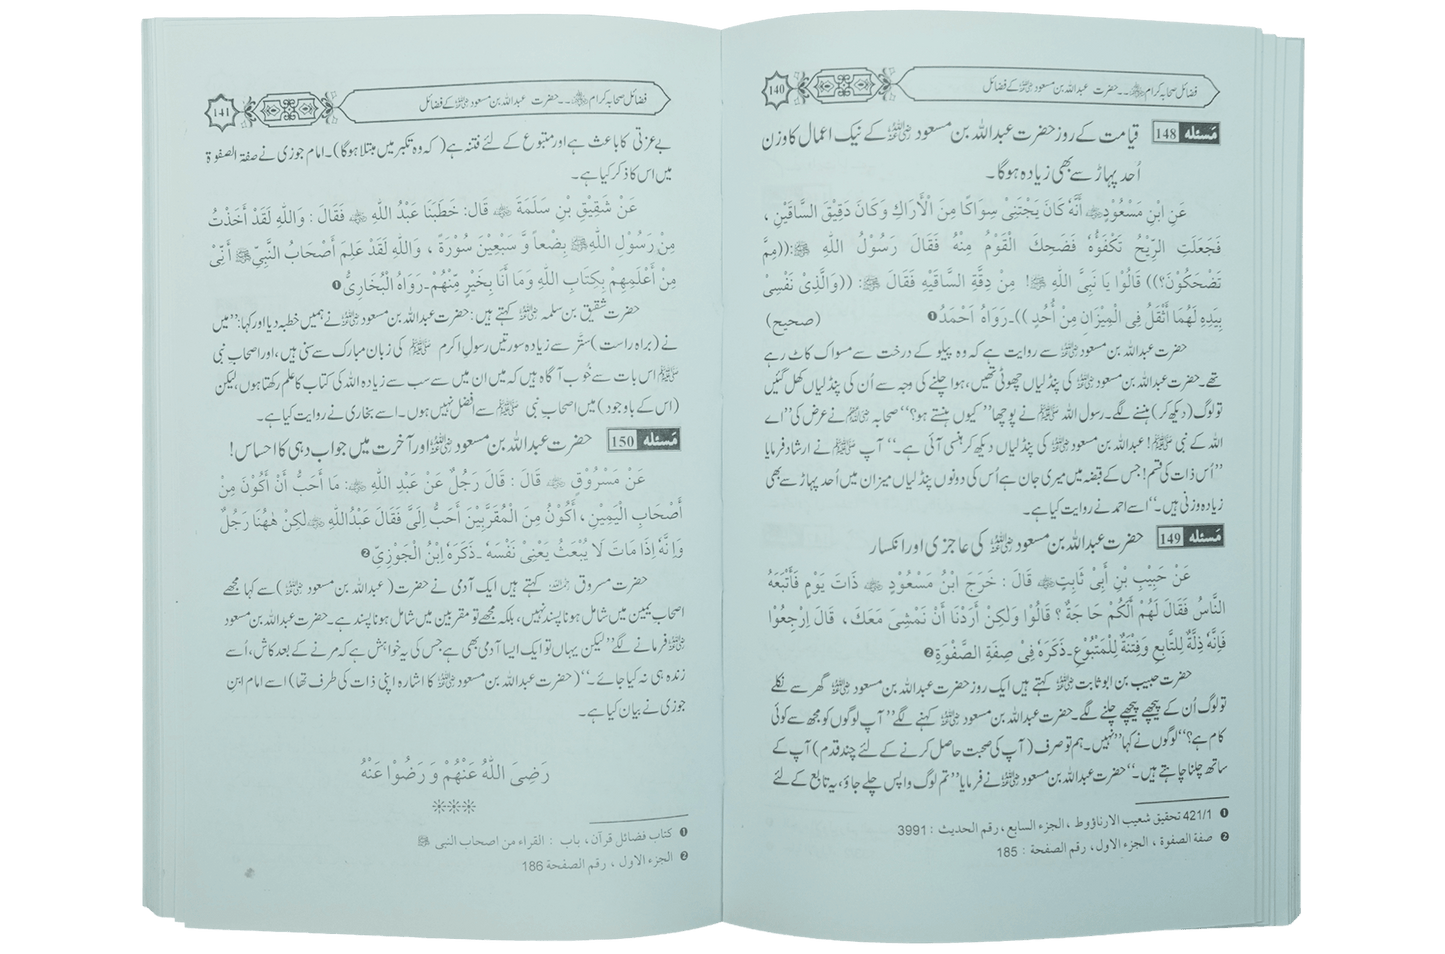 140
فضائل صحابہ کرام ﷢ ۔۔۔ حضرت عبداللہ بن مسعود ﷜ کے فضائل
مَسئله 148 قیامت کے روز حضرت عبداللہ بن مسعود ﷜ کے نیک اعمال کا وزن
اُحد پہاڑ سے بھی زیادہ ہوگا۔
عَنِ ابْنِ مَسْعُوْدٍ ﷜ أَنَّهٗ كَانَ يَجْتَنِیْ سِوَاكًا مِنَ الْأَرَاكِ وَكَانَ دَقِيْقَ السَّاقَيْنِ ،
فَجَعَلَتِ الرِّيْحُ تَكْفَؤُهٗ فَضَحِكَ الْقَوْمُ مِنْهُ فَقَالَ رَسُوْلُ اللّٰهِ ﷺ :((مِمَّ
تَضْحَكُوْنَ؟)) قَالُوْا يَا نَبِیَّ اللّٰهِ ﷺ! مِنْ دِقَّةِ السَّاقَيْهِ فَقَالَ ﷺ: ((وَالَّذِیْ نَفْسِیْ
بِيَدِهٖ لَهُمَا أَثْقَلُ فِی الْمِيْزَانِ مِنْ أُحُدٍ ))۔رَوَاهُ اَحْمَدُ❶ (صحيح)
حضرت عبداللہ بن مسعود ﷜ سے روایت ہے کہ وہ پیلو کے درخت سے مسواک کاٹ رہے
تھے۔حضرت عبداللہ بن مسعود ﷜ کی پنڈلیاں چھوٹی تھیں، ہوا چلنے کی وجہ سے اُن کی پنڈلیاں کھل گئیں
تو لوگ (دیکھ کر) ہنسنے لگے۔ رسول اللہ ﷺ نے پوچھا ”کیوں ہنستے ہو؟“ صحابہ ﷢ نے عرض کی ”اے
اللہ کے نبی ﷺ! عبداللہ بن مسعود ﷜ کی پنڈلیاں دیکھ کر ہنسی آئی ہے۔“ آپ ﷺ نے ارشاد فرمایا
”اُس ذات کی قسم! جس کے قبضہ میں میری جان ہے اُس کی دونوں پنڈلیاں میزان میں اُحد پہاڑ سے بھی
زیادہ وزنی ہیں۔“ اسے احمد نے روایت کیا ہے۔
مَسئله 149 حضرت عبداللہ بن مسعود ﷜ کی عاجزی اور انکسار
عَنْ حَبِيْبِ بْنِ أَبِیْ ثَابِتٍ ﷫ قَالَ : خَرَجَ ابْنُ مَسْعُوْدٍ ﷜ ذَاتَ يَوْمٍ فَأَتْبَعَهُ
النَّاسُ فَقَالَ لَهُمْ أَلَكُمْ حَا جَةٌ ؟ قَالُوْا وَلٰكِنْ أَرَدْنَا أَنْ نَمْشِیَ مَعَكَ ، قَالَ اِرْجِعُوْا
فَإِنَّهٗ ذِلَّةٌ لِلتَّابِعِ وَفِتْنَةٌ لِلْمَتْبُوْعِ۔ذَكَرَهٗ فِیْ صِفَةِ الصَّفْوَةِ❷
حضرت حبیب بن ابو ثابت ﷫ کہتے ہیں ایک روز حضرت عبداللہ بن مسعود ﷜ گھر سے نکلے
تو لوگ اُن کے پیچھے پیچھے چلنے لگے۔ حضرت عبداللہ بن مسعود ﷜ کہنے لگے ”آپ لوگوں کو مجھ سے کوئی
کام ہے؟“ لوگوں نے کہا ”نہیں۔ ہم تو صرف (آپ کی صحبت حاصل کرنے کے لئے چند قدم) آپ کے
ساتھ چلنا چاہتے ہیں۔“ حضرت عبداللہ بن مسعود ﷜ نے فرمایا ”تم لوگ واپس چلے جاؤ، یہ تابع کے لئے
❶ 421/1 تحقيق شعيب الارناؤوط ، الجزء السابع ، رقم الحديث : 3991
❷ صفة الصفوة ، الجزء الاول ، رقم الصفحة : 185
141
فضائل صحابہ کرام ﷢ ۔۔۔ حضرت عبداللہ بن مسعود ﷜ کے فضائل
بے عزتی کا باعث ہے اور متبوع کے لئے فتنہ ہے (کہ وہ تکبر میں مبتلا ہوگا)۔ امام جوزی نے صفۃ الصفوۃ
میں اس کا ذکر کیا ہے۔
عَنْ شَقِيْقِ بْنِ سَلَمَةَ ﷫ قَالَ: خَطَبَنَا عَبْدُ اللّٰهِ ﷜ فَقَالَ : وَاللّٰهِ لَقَدْ أَخَذْتُ
مِنْ رَسُوْلِ اللّٰهِ ﷺ بِضْعاً وَّ سَبْعِيْنَ سُوْرَةً ، وَاللّٰهِ لَقَدْ عَلِمَ أَصْحَابُ النَّبِیِّ ﷺ أَنِّیْ
مِنْ أَعْلَمِهِمْ بِكِتَابِ اللّٰهِ وَمَا أَنَا بِخَيْرٍ مِّنْهُمْ۔رَوَاهُ الْبُخَارِیُّ❶
حضرت شقیق بن سلمہ ﷫ کہتے ہیں: حضرت عبداللہ بن مسعود ﷜ نے ہمیں خطبہ دیا اور کہا: ”میں
نے (براہ راست) ستّر سے زیادہ سورتیں رسول اکرم ﷺ کی زبان مبارک سے سنی ہیں، اور اصحاب نبی
ﷺ اس بات سے خُوب آگاہ ہیں کہ میں ان میں سے سب سے زیادہ اللہ کی کتاب کا علم رکھتا ہوں، لیکن
(اس کے باوجود) میں اصحاب نبی ﷺ سے افضل نہیں ہوں۔ اسے بخاری نے روایت کیا ہے۔
مَسئله 150 حضرت عبداللہ بن مسعود ﷜ اور آخرت میں جواب دہی کا احساس!
عَنْ مَسْرُوْقٍ ﷫ قَالَ : قَالَ رَجُلٌ عَنْ عَبْدِ اللّٰهِ ﷜: مَا أُحِبُّ أَنْ أَكُوْنَ مِنْ
أَصْحَابِ الْيَمِيْنِ، أَكُوْنُ مِنَ الْمُقَرَّبِيْنَ أَحَبُّ اِلَیَّ فَقَالَ عَبْدُاللّٰهِ ﷜ لٰكِنْ هٰهُنَا رَجُلٌ
وَاِنَّهٗ اِذَا مَاتَ لَا يُبْعَثُ يَعْنِیْ نَفْسَهٗ ۔ذَكَرَهٗ اِبْنُ الْجَوْزِیِّ❷
حضرت مسروق ﷫ کہتے ہیں ایک آدمی نے حضرت (عبداللہ بن مسعود ﷜) سے کہا مجھے
اصحاب یمین میں شامل ہونا پسند نہیں، بلکہ مجھے تو مقربین میں شامل ہونا پسند ہے۔ حضرت عبداللہ بن مسعود
﷜ فرمانے لگے ”لیکن یہاں تو ایک ایسا آدمی بھی ہے جس کی یہ خواہش ہے کہ مرنے کے بعد کاش، اُسے
زندہ ہی نہ کیا جائے۔“ (حضرت عبداللہ بن مسعود ﷜ کا اشارہ اپنی ذات کی طرف تھا) اسے امام ابن
جوزی نے بیان کیا ہے۔
رَضِیَ اللّٰهُ عَنْهُمْ وَ رَضُوْا عَنْهُ
❶ كتاب فضائل قرآن، باب : القراء من اصحاب النبی ﷺ
❷ الجزء الاول ، رقم الصفحة 186